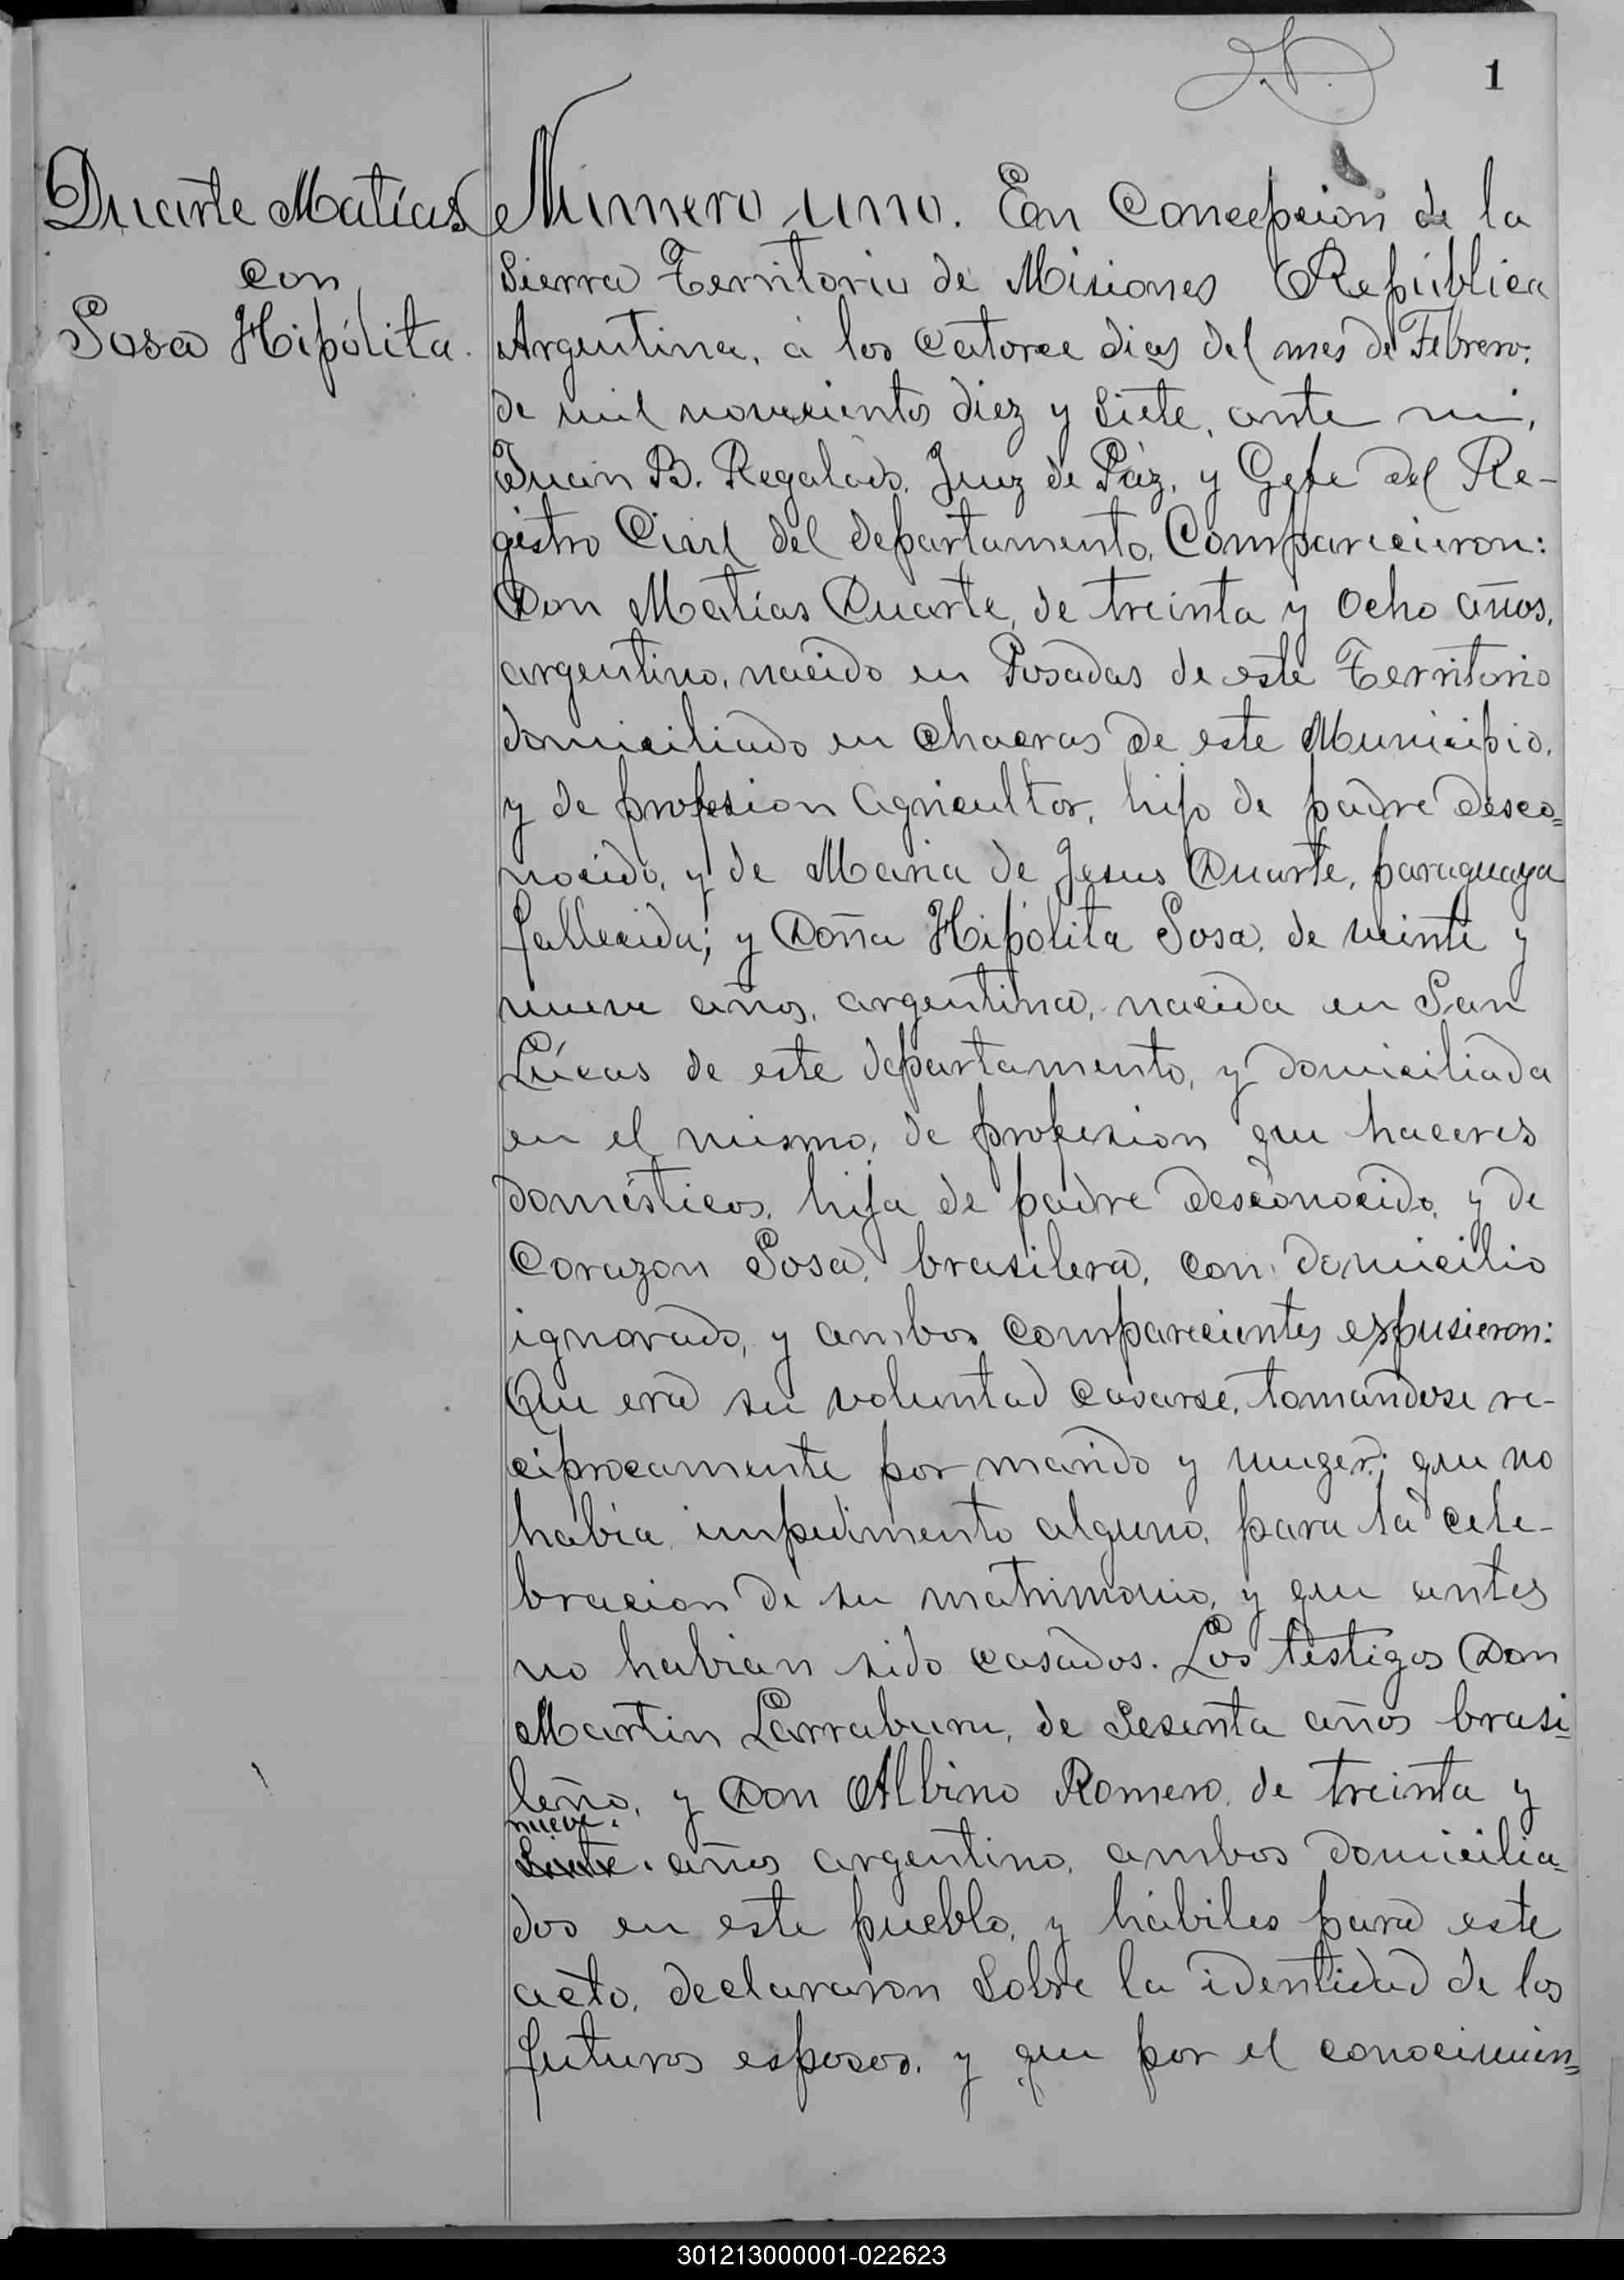 1
Duarte Matías
con
Sosa Hipólita.
Número uno. En Concepcion de la
Sierra Territorio de Misiones República
Argentina, á los catorce dias del mes de Febrero,
de mil novecientos diez y siete, ante mi,
Juan B. Regalado, Juez de Páz, y Gefe del Re-
gistro Civil del departamento, Comparecieron:
Don Matías Duarte, de treinta y ocho años,
argentino, nacido en Posadas de este Territorio
domiciliado en chacras de este Municipio,
y de profesion agricultor, hijo de padre desco=
nocido, y de Maria de Jesus Duarte, paraguaya
fallecida; y Doña Hipólita Sosa, de veinte y
nueve años, argentina, nacida en San
Lúcas de este departamento, y domiciliada
en el mismo, de profesion que haceres
domésticos, hija de padre desconocido, y de
Corazon Sosa, brasilera, con domicilio
ignorado, y ambos comparecientes espusieron:
Que era su voluntad casarse, tomandose re-
ciprocamente por marido y muger; que no
habia impedimento alguno, para la cele-
bracion de su matrimonio, y que antes
no habian sido casados. Los testigos Don
Martin Larraburu, de sesenta años brasi-
leño, y Don Albino Romero, de treinta y
nueve.
siete. años argentino, ambos domicilia-
dos en este pueblo, y hábiles para este
acto, declararon sobre la identidad de los
futuros esposos, y que por el conocimien=
301213000001-022623